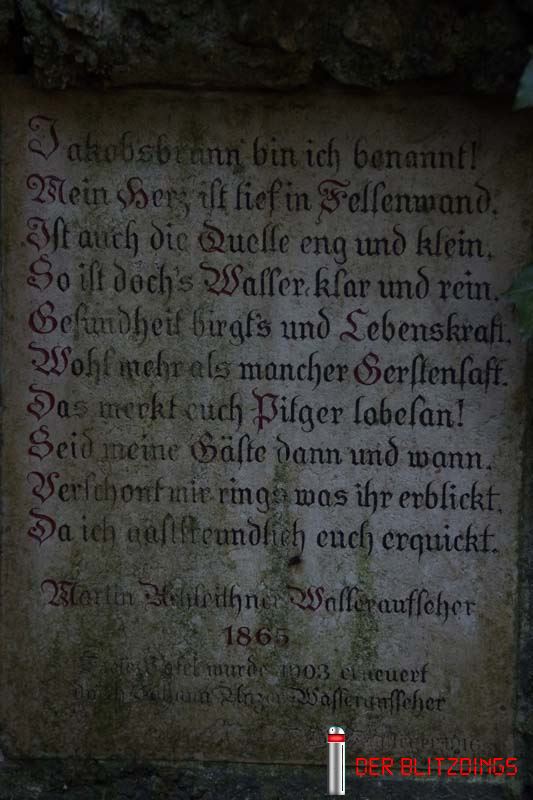 Jakobsbrunn bin ich benannt!
Mein Herz ist tief in Felsenwand.
Ist auch die Quelle eng und klein,
So ist doch's Wasser klar und rein.
Gesundheit birgt's und Lebenskraft.
Wohl mehr als mancher Gerstensaft.
Das merkt euch Pilger lobesan!
Seid meine Gäste dann und wann.
Verschont mir rings was ihr erblickt,
Da ich gastfreundlich euch erquickt.
Martin Wasseraufseher
1865
Diese Tafel wurde 1903 erneuert
durch Johann Wasseraufseher
DER BLITZDINGS